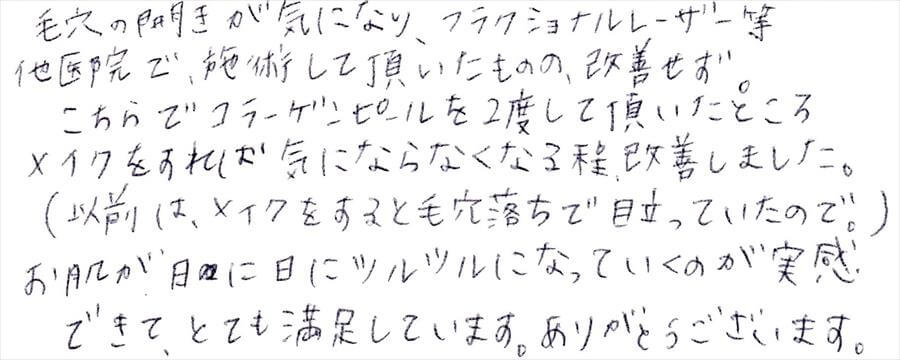 毛穴の開きが気になり、フラクショナルレーザー等
他医院で、施術して頂いたものの、改善せず。
こちらでコラーゲンピールを2度して頂いたところ
メイクをすれば気にならなくなる程、改善しました。
(以前は、メイクをすると毛穴落ちで目立っていたので。)
お肌が日に日にツルツルになっていくのが実感
できて、とても満足しています。ありがとうございます。